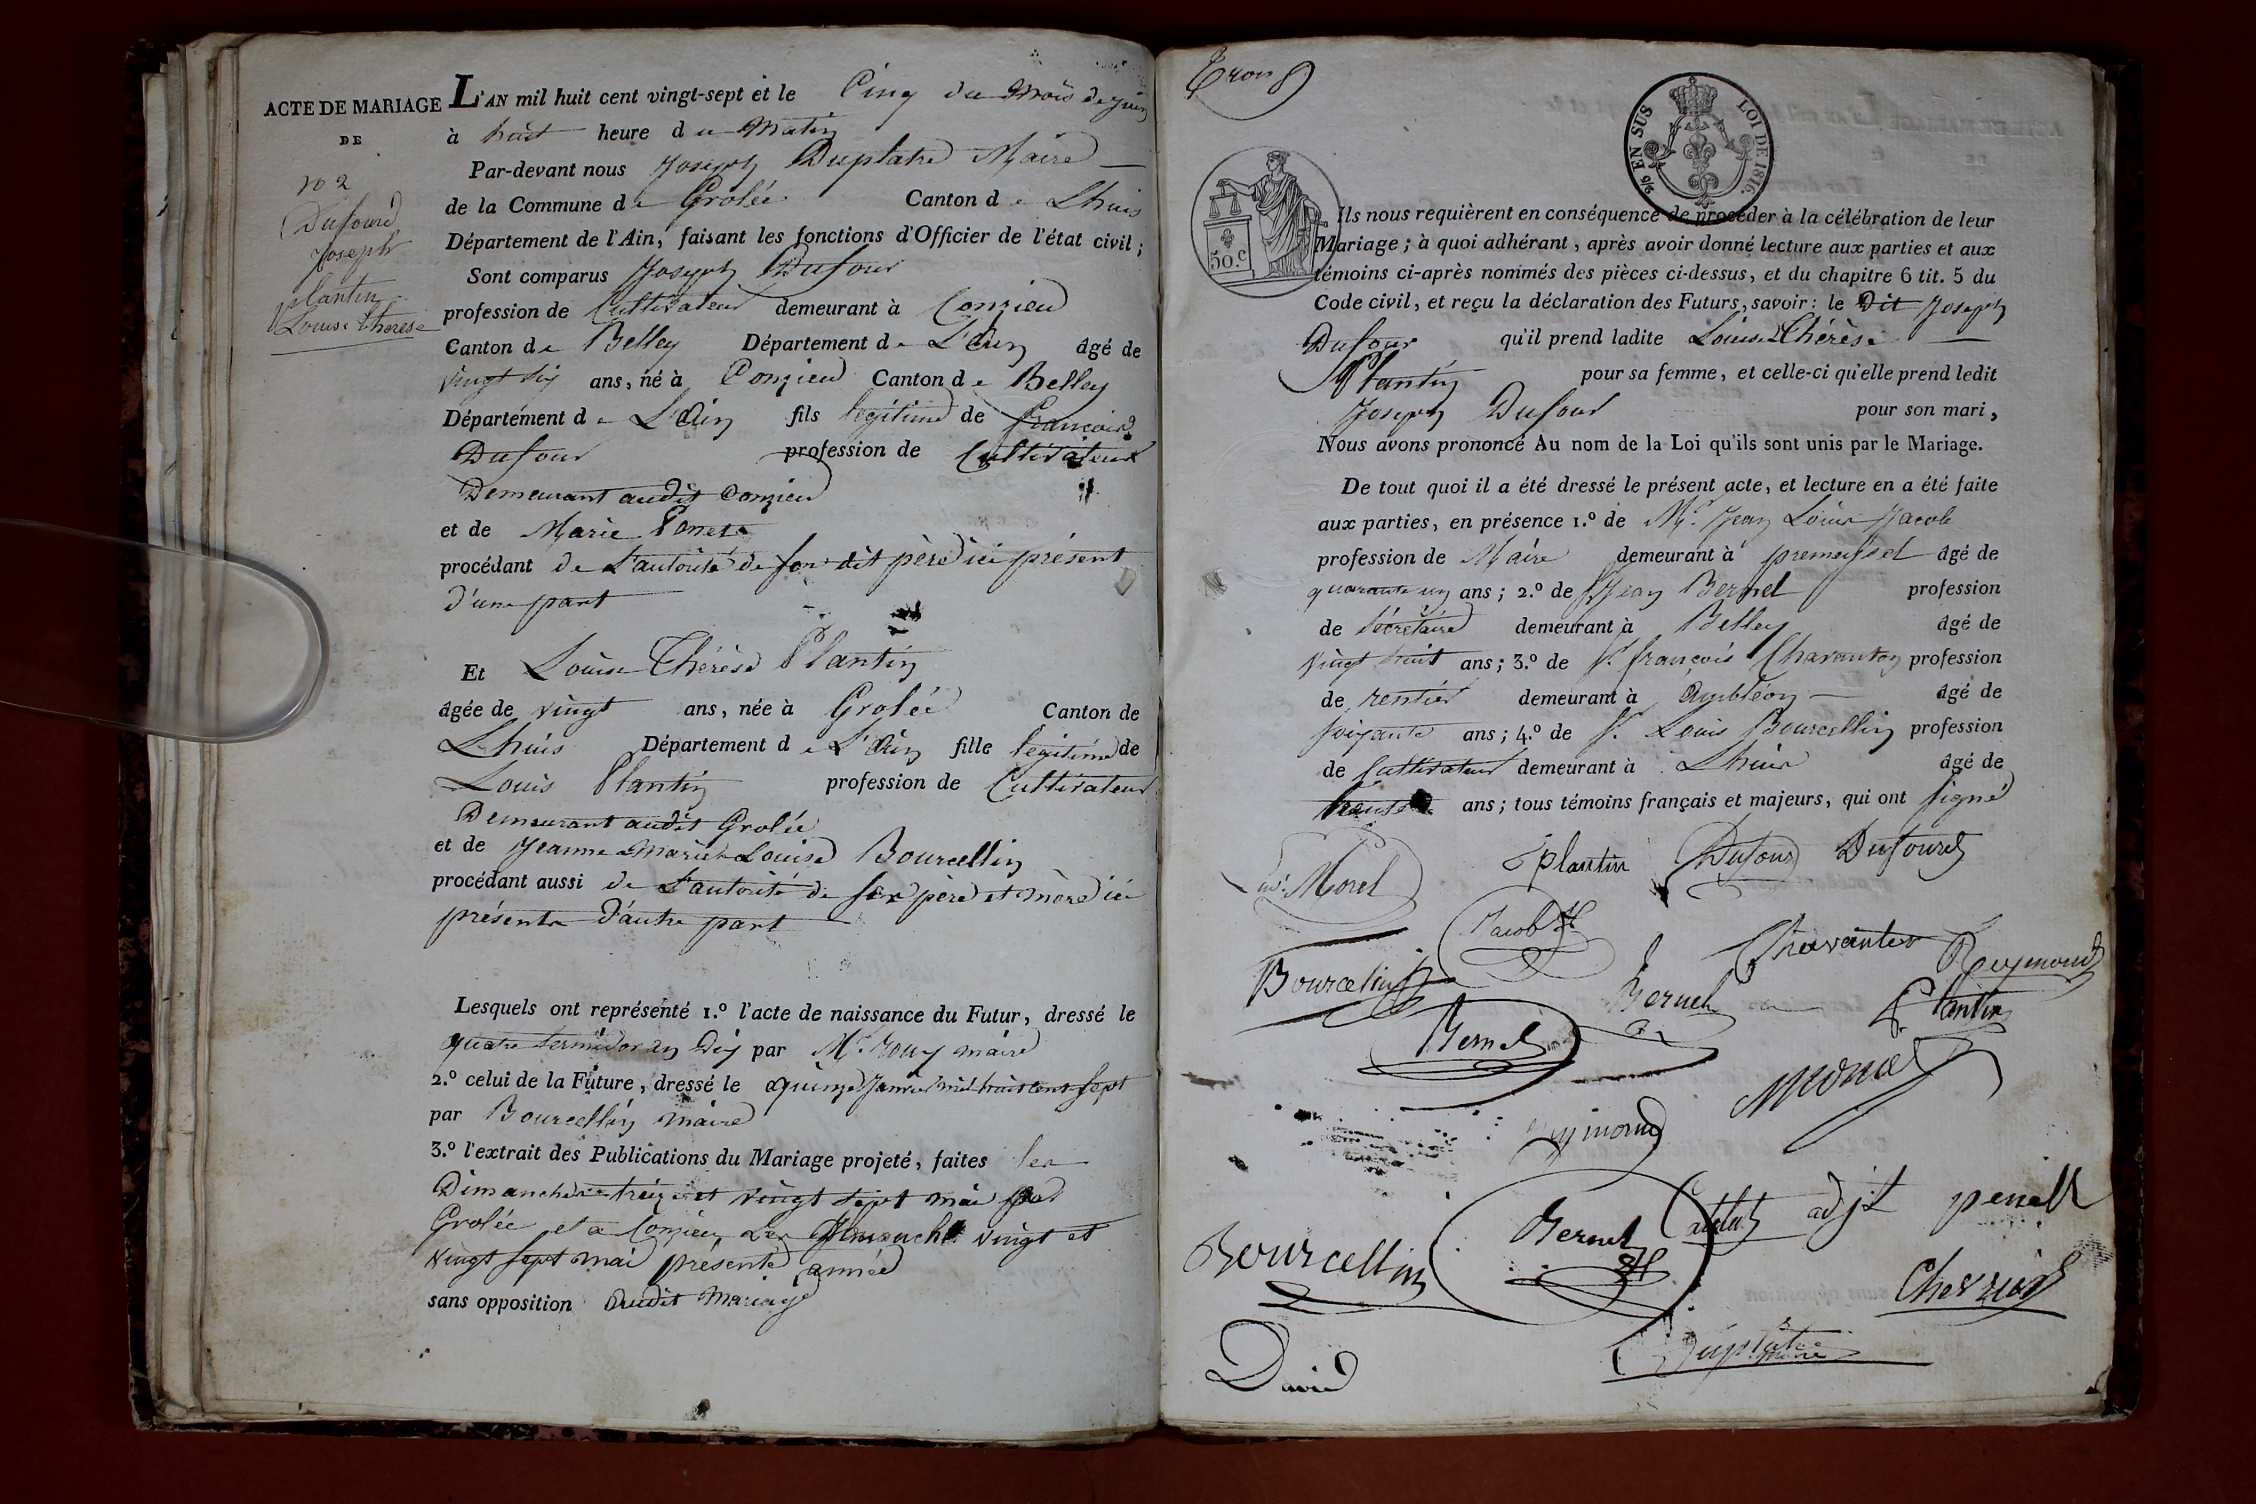 ACTE DE MARIAGE
DE
no 2
Dufour
Joseph
plantin
Louise thérèse
L'AN mil huit cent vingt-sept et le Cinq du Mois de juin
à huit heure du Matin
Par-devant nous Joseph Duplatre Maire
de la Commune de Grolée Canton de Lhuis
Département de l'Ain, faisant les fonctions d'Officier de l'état civil;
Sont comparus Joseph Dufour
profession de Cultivateur demeurant à Conzieu
Canton de Belley Département de L'Ain âgé de
vingt six ans, né à Conzieu Canton de Belley
Département de L'Ain fils légitime de françois
Dufour profession de Cultivateur
Demeurant audit Conzieu
et de Marie
procédant de L'autorité de son dit père ici présent
d'une part
Et Louise Thérèse Plantin
âgée de vingt ans, née à Grolée Canton de
Lhuis Département de L'Ain fille légitime de
Louis Plantin profession de Cultivateur
Demeurant audit Grolée
et de Jeanne Marie Louise Bourcellin
procédant aussi de L'autorité de ses père et mère ici
présents D'autre part
Lesquels ont représenté 1.º l'acte de naissance du Futur, dressé le
quatre termidor an Dix par Mr. maire
2.º celui de la Future, dressé le quinze Janvier mil huit cent sept
par Bourcellin maire
3.º l'extrait des Publications du Mariage projeté, faites les
Dimanches et vingt sept mai
Grolée et a Conzieu Les Dimanche vingt et
vingt sept mai présente année
sans opposition Audit Mariage
Trois
EN SUS
LOI DE 1816.
50.c
Ils nous requièrent en conséquence de procéder à la célébration de leur
Mariage; à quoi adhérant, après avoir donné lecture aux parties et aux
témoins ci-après nommés des pièces ci-dessus, et du chapitre 6 tit. 5 du
Code civil, et reçu la déclaration des Futurs, savoir: le Dit Joseph
Dufour qu'il prend ladite Louise Thérèse
Plantin pour sa femme, et celle-ci qu'elle prend ledit
Joseph Dufour pour son mari,
Nous avons prononcé Au nom de la Loi qu'ils sont unis par le Mariage.
De tout quoi il a été dressé le présent acte, et lecture en a été faite
aux parties, en présence 1.º de Mr. Jean Louis Jacob
profession de Maire demeurant à premeysel âgé de
quarante un ans; 2.º de Jean Bernel profession
de Sécrétaire demeurant à Belley âgé de
vingt huit ans; 3.º de Sr. françois Charanton profession
de rentier demeurant à Ambléon âgé de
soixante ans; 4.º de Sr. Louis Bourcellin profession
de Cultivateur demeurant à Lhuis âgé de
ans; tous témoins français et majeurs, qui ont signé
Morel
plantin
Dufour
Jacob
Bourcelin
Reymond
Bernel
Plantin
Bernel
Bourcellin
Bernel
adjt
David
Duplatre
maire